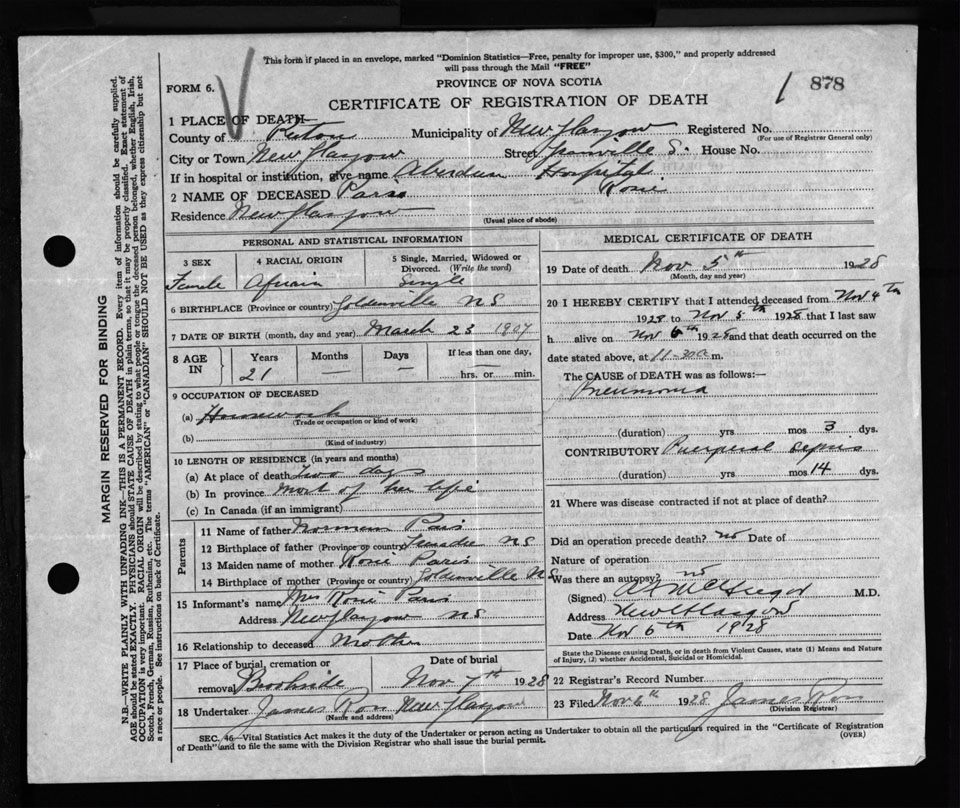 This form if placed in an envelope, marked "Dominion Statistics—Free, penalty for improper use, $300," and properly addressed
will pass through the Mail "FREE"
FORM 6.
PROVINCE OF NOVA SCOTIA
CERTIFICATE OF REGISTRATION OF DEATH
1 878
1 PLACE OF DEATH
County of Pictou Municipality of New Glasgow Registered No.
(For use of Registrar General only)
City or Town New Glasgow Street Granville S. House No.
If in hospital or institution, give name Aberdeen Hospital
2 NAME OF DECEASED Paris Rosie
Residence New Glasgow
(Usual place of abode)
PERSONAL AND STATISTICAL INFORMATION
3 SEX 4 RACIAL ORIGIN 5 Single, Married, Widowed or
Divorced. (Write the word)
Female African Single
6 BIRTHPLACE (Province or country) Goldenville NS
7 DATE OF BIRTH (month, day and year) March 23 1907
8 AGE
IN
Years Months Days If less than one day,
21 — — hrs. or min.
9 OCCUPATION OF DECEASED
(a) Housework
(Trade or occupation or kind of work)
(b)
(Kind of industry)
10 LENGTH OF RESIDENCE (in years and months)
(a) At place of death Two days
(b) In province Most of her life
(c) In Canada (if an immigrant)
Parents
11 Name of father Norman Paris
12 Birthplace of father (Province or country) NS
13 Maiden name of mother Rosie Paris
14 Birthplace of mother (Province or country) Goldenville NS
15 Informant's name Mrs Rosie Paris
Address New Glasgow NS
16 Relationship to deceased Mother
17 Place of burial, cremation or Date of burial
removal Brookside Nov 7th 1928
18 Undertaker James Ross New Glasgow
(Name and address)
MEDICAL CERTIFICATE OF DEATH
19 Date of death Nov 5th 1928
(Month, day and year)
20 I HEREBY CERTIFY that I attended deceased from Nov 4th
1928 to Nov 5th 1928 that I last saw
h alive on Nov 6th 1928 and that death occurred on the
date stated above, at 11-30 a m.
The CAUSE of DEATH was as follows:—
Pneumonia
(duration) yrs mos 3 dys.
CONTRIBUTORY Puerperal Sepsis
(duration) yrs mos 14 dys.
21 Where was disease contracted if not at place of death?
Did an operation precede death? no Date of
Nature of operation
Was there an autopsy? no
(Signed) McGregor M.D.
Address New Glasgow
Date Nov 6th 1928
State the Disease causing Death, or in death from Violent Causes, state (1) Means and Nature
of Injury, (2) whether Accidental, Suicidal or Homicidal.
22 Registrar's Record Number
23 Filed Nov 6th 1928 James Ross
(Division Registrar)
SEC. 46—Vital Statistics Act makes it the duty of the Undertaker or person acting as Undertaker to obtain all the particulars required in the "Certificate of Registration
of Death" and to file the same with the Division Registrar who shall issue the burial permit.
(OVER)
MARGIN RESERVED FOR BINDING
N.B.—WRITE PLAINLY WITH UNFADING INK—THIS IS A PERMANENT RECORD. Every item of information should be carefully supplied.
AGE should be stated EXACTLY. PHYSICIANS should STATE CAUSE OF DEATH in plain terms, so that it may be properly classified. Exact statement of
OCCUPATION is very important. RACIAL ORIGIN will be described by stating to what people or tongue the deceased person belonged, whether English, Irish,
Scotch, French, German, Russian, Ruthenian, etc. The terms "AMERICAN" or "CANADIAN" SHOULD NOT BE USED as they express citizenship but not
a race or people. See instructions on back of Certificate.